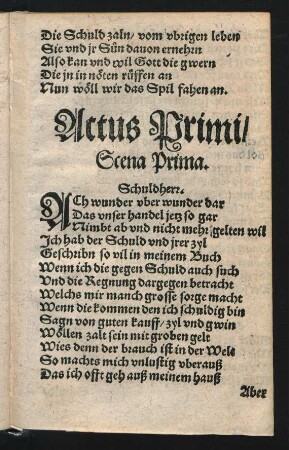 Die Schuld zaln/ vom vbrigen leben
Sie vnd jr Sün dauon ernehrn
Also kan vnd wil Gott die gwern
Die jn in nöten rüffen an
Nun wöll wir das Spil fahen an.
Actus Primi/
Scena Prima.
Schuldherr.
ACh wunder vber wunder dar
Das vnser handel jetz so gar
Nimbt ab vnd nicht mehr gelten wil
Ich hab der Schuld vnd jrer zyl
Geschribn so vil in meinem Buch
Wenn ich die gegen Schuld auch such
Vnd die Regnung dargegen betracht
Welchs mir manch grosse sorge macht
Wenn die kommen den ich schuldig bin
Sagn von guten kauff/ zyl vnd gwin
Wöllen zalt sein mit groben gelt
Wies denn der brauch ist in der Welt
So machts mich vnlustig vberauß
Das ich offt geh auß meinem hauß
Aber